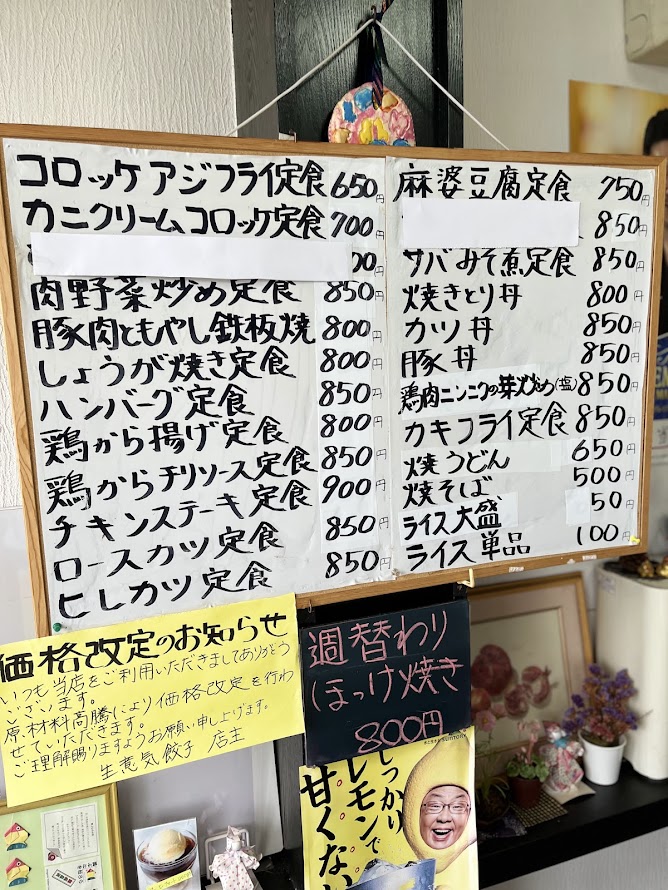 コロッケアジフライ定食 650円
カニクリームコロッケ定食 700円
00円
肉野菜炒め定食 850円
豚肉ともやし鉄板焼 800円
しょうが焼き定食 800円
ハンバーグ定食 850円
鶏から揚げ定食 800円
鶏からチリソース定食 850円
チキンステーキ定食 900円
ロースカツ定食 850円
ヒレカツ定食 850円
麻婆豆腐定食 750円
850円
サバみそ煮定食 850円
焼きとり丼 800円
カツ丼 850円
豚丼 850円
鶏肉ニンニクの芽炒め(塩) 850円
カキフライ定食 850円
焼うどん 650円
焼そば 500円
ライス大盛 50円
ライス単品 100円
価格改定のお知らせ
いつも当店をご利用いただきましてありがとう
ございます。
原材料高騰により価格改定を行わ
せていただきます。
ご理解賜りますようお願い申し上げます。
生意気餃子 店主
週替わり
ほっけ焼き
800円
SUNTORY
しっかり
レモンで
甘くない